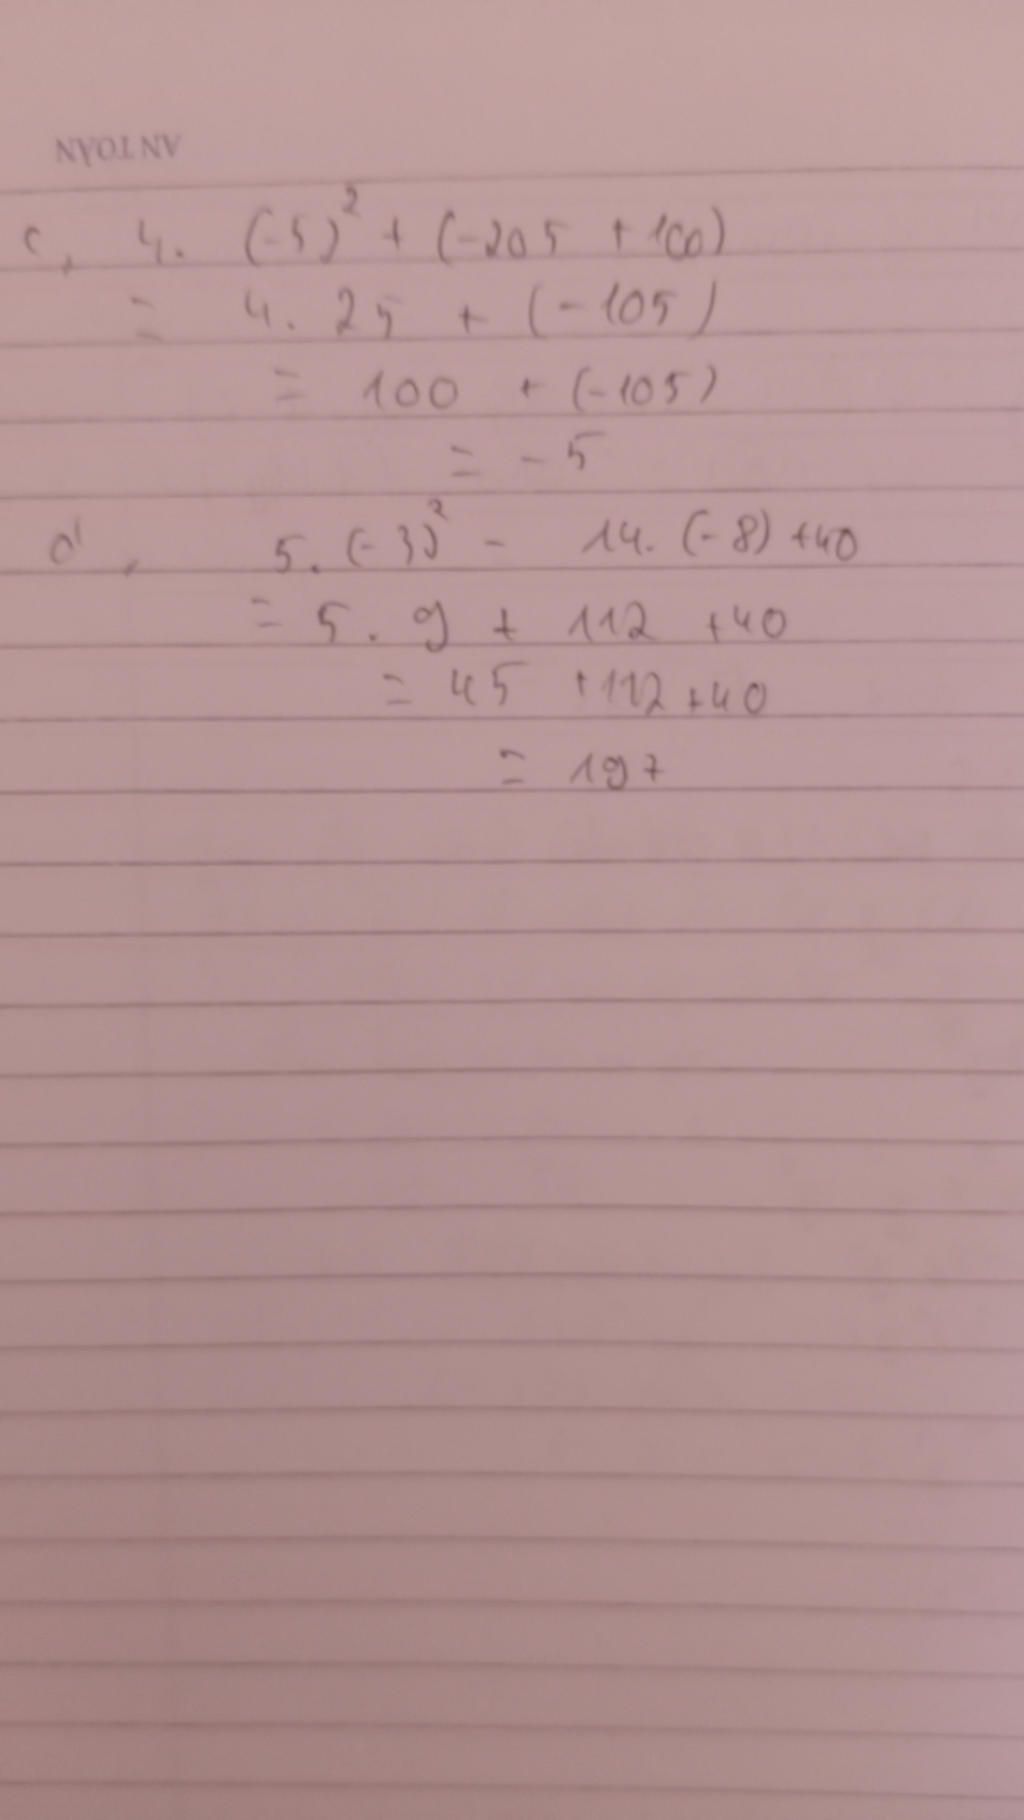 AN TOÀN
c, 4. (-5)² + (-205 + 100)
= 4. 25 + (-105)
= 100 + (-105)
= -5
d, 5. (-3)² - 14. (-8) +40
= 5. 9 + 112 +40
= 45 +112 +40
= 197